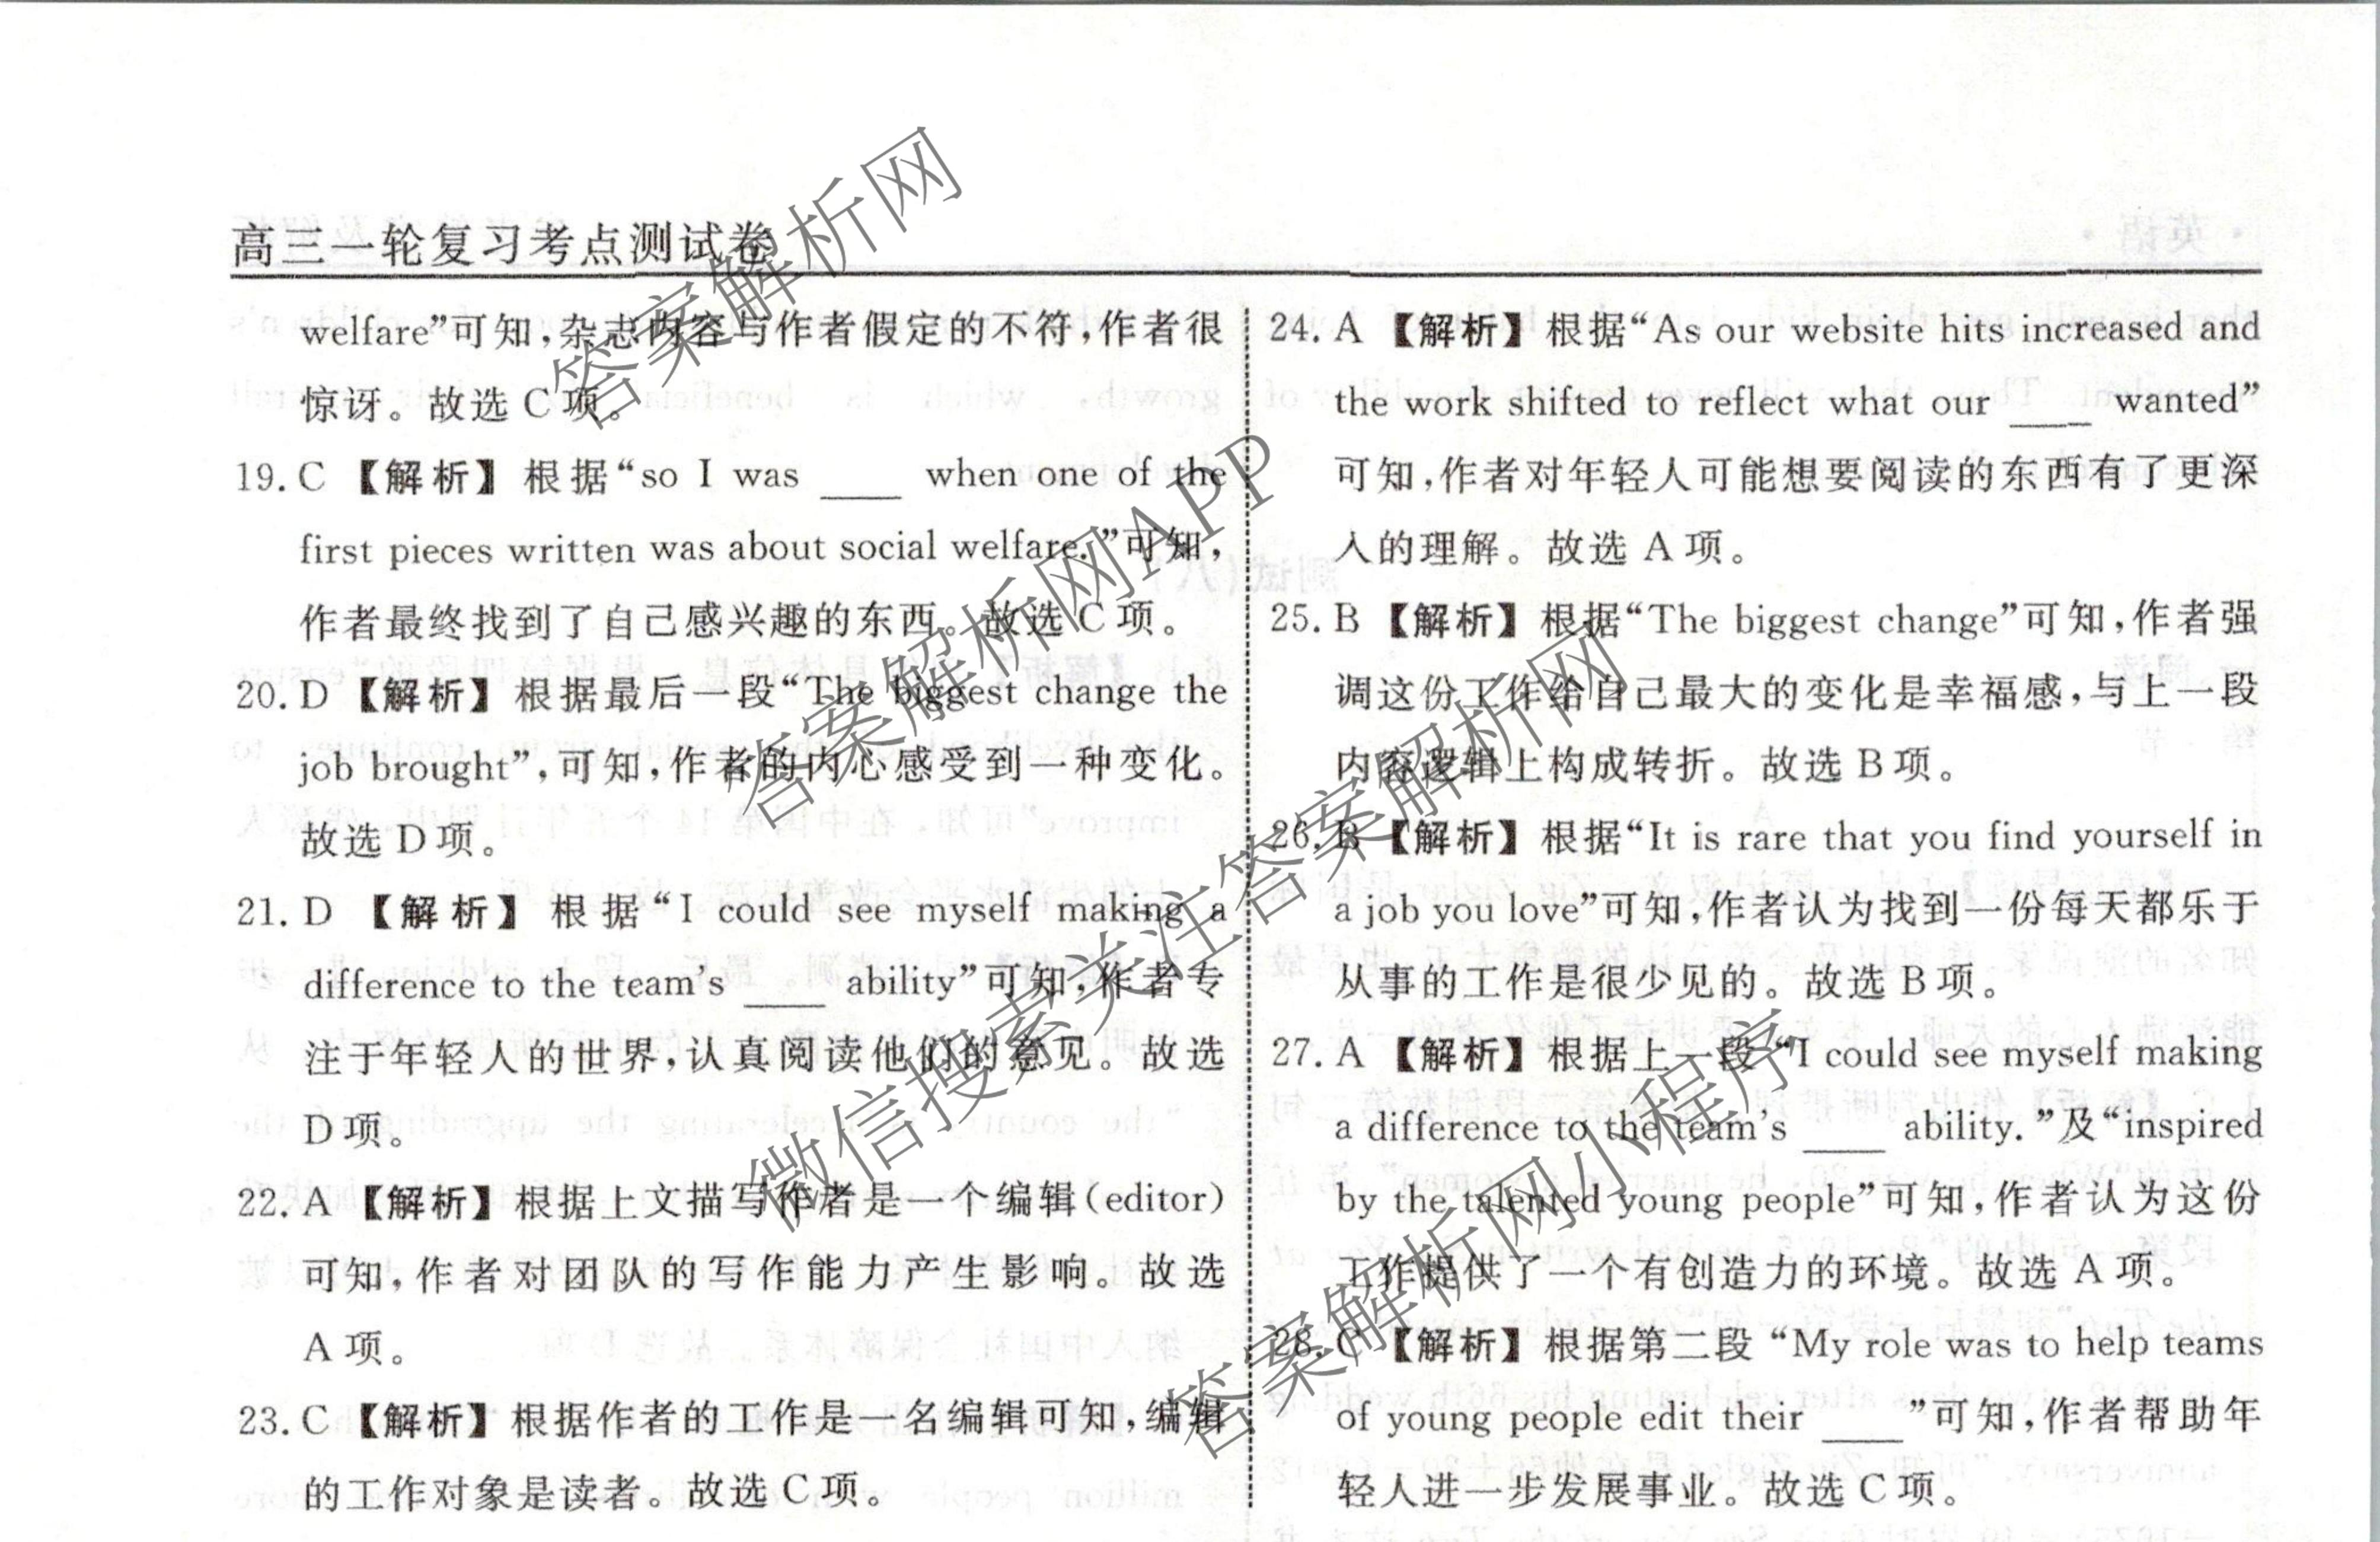 高三一轮复习考点测试卷
welfare”可知,杂志内容与作者假定的不符,作者很
惊讶。故选 C 项。
19. C 【解析】根据“so I was ____ when one of the
first pieces written was about social welfare.”可知,
作者最终找到了自己感兴趣的东西。故选 C 项。
20. D 【解析】根据最后一段“The biggest change the
job brought”,可知,作者的内心感受到一种变化。
故选 D 项。
21. D 【解析】根据“I could see myself making a
difference to the team's ____ ability”可知,作者专
注于年轻人的世界,认真阅读他们的意见。故选
D 项。
22. A 【解析】根据上文描写作者是一个编辑(editor)
可知,作者对团队的写作能力产生影响。故选
A 项。
23. C 【解析】根据作者的工作是一名编辑可知,编辑
的工作对象是读者。故选 C 项。
24. A 【解析】根据“As our website hits increased and
the work shifted to reflect what our ____ wanted”
可知,作者对年轻人可能想要阅读的东西有了更深
人的理解。故选 A 项。
25. B 【解析】根据“The biggest change”可知,作者强
调这份工作给自己最大的变化是幸福感,与上一段
内容逻辑上构成转折。故选 B 项。
26. B 【解析】根据“It is rare that you find yourself in
a job you love”可知,作者认为找到一份每天都乐于
从事的工作是很少见的。故选 B 项。
27. A 【解析】根据上一段“I could see myself making
a difference to the team's ____ ability.”及“inspired
by the talented young people”可知,作者认为这份
工作提供了一个有创造力的环境。故选 A 项。
28. C 【解析】根据第二段“My role was to help teams
of young people edit their ____”可知,作者帮助年
轻人进一步发展事业。故选 C 项。
答案解析网
答案解析网APP
微信搜索关注答案解析网
答案解析网小程序